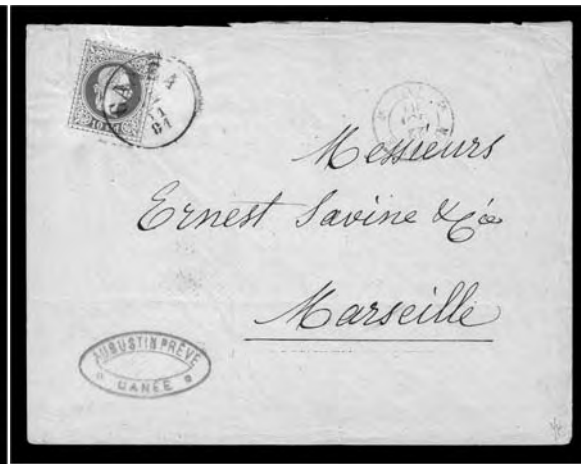 10
CANEA
11
81
Messieurs
Ernest Savine & Cie
Marseille
AUGUSTIN PRÈVE
CANÉE